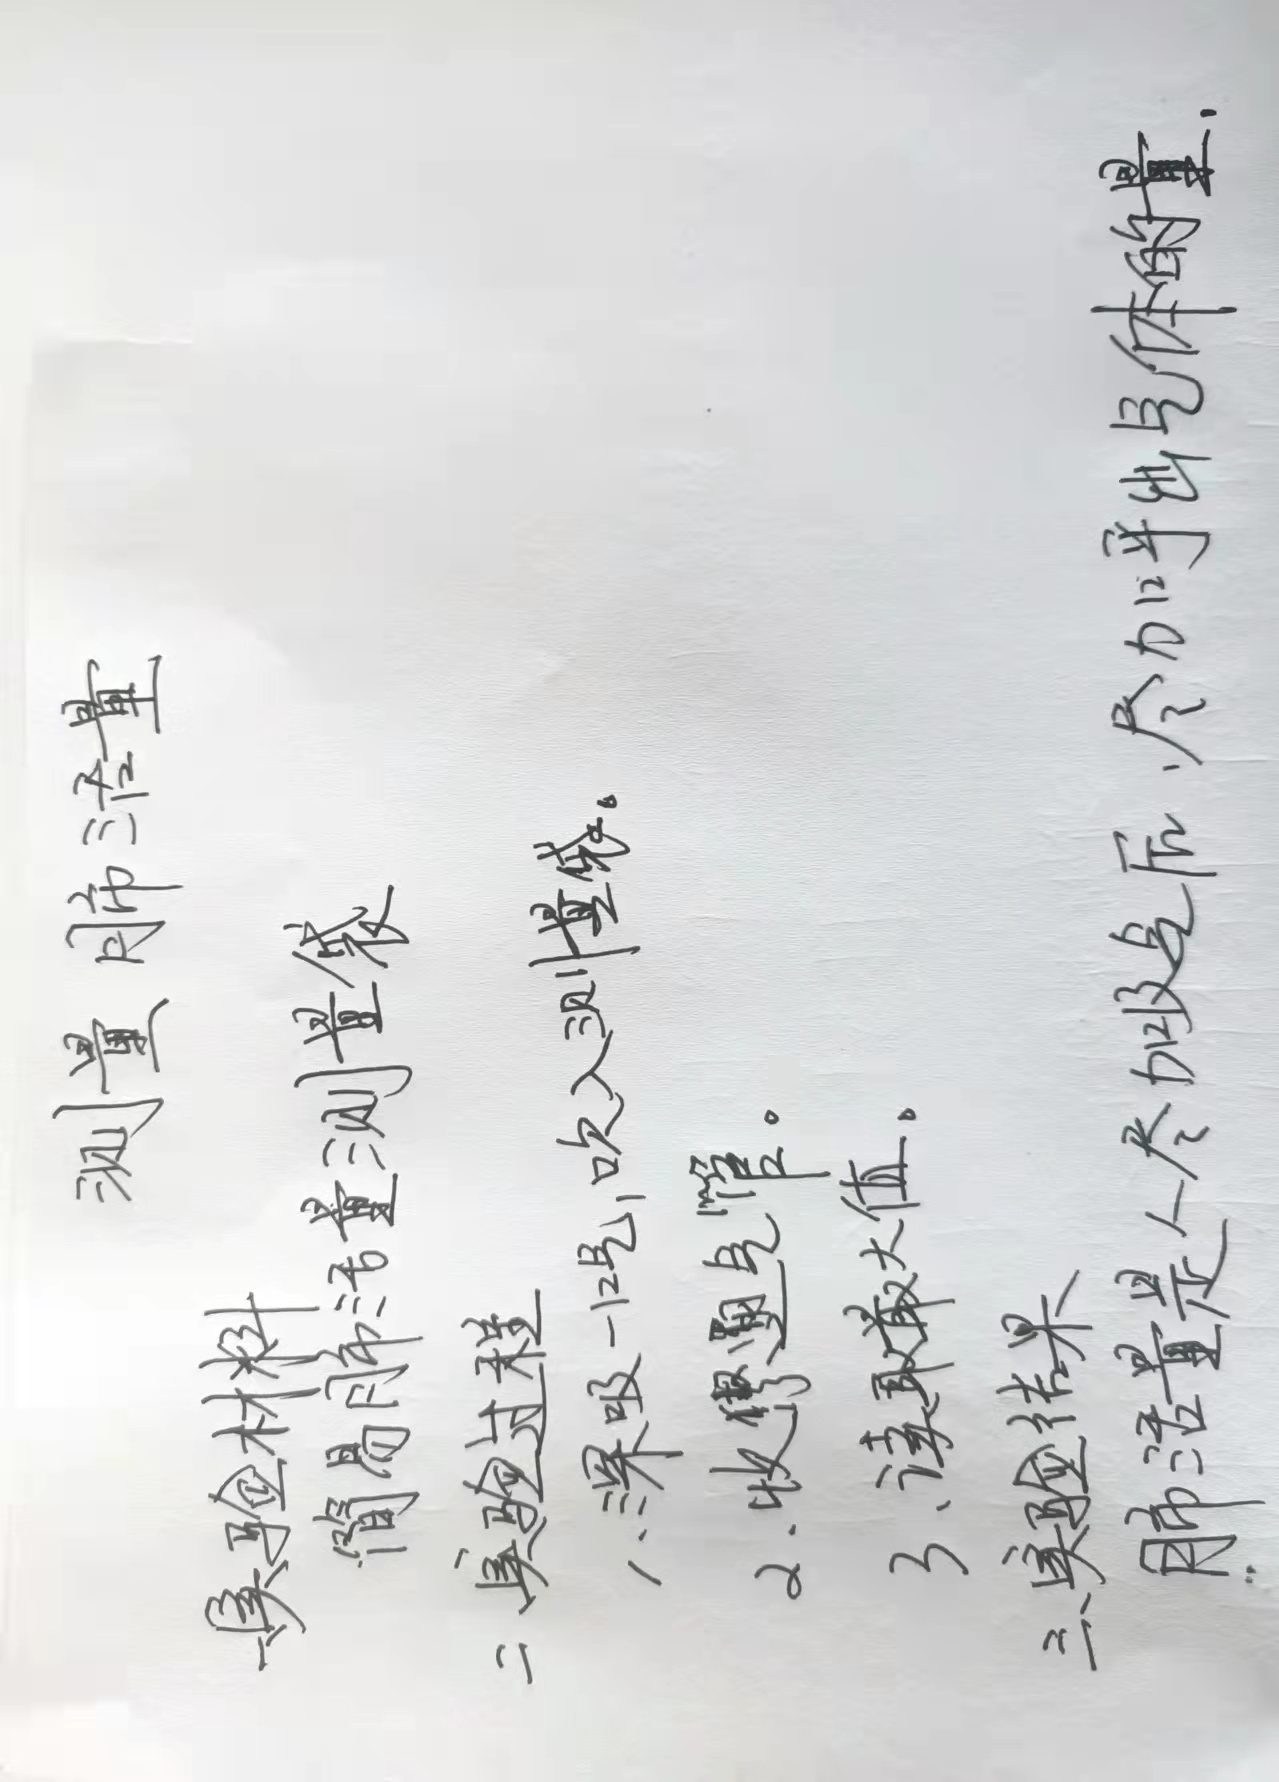 测量肺活量
一实验材料
简易肺活量测量袋
二实验过程
1、深吸一口气,吹入测量袋。
2、收紧通气管。
3、读取最大值。
三、实验结果
肺活量是人尽力吸气后,尽力呼出气体的量.